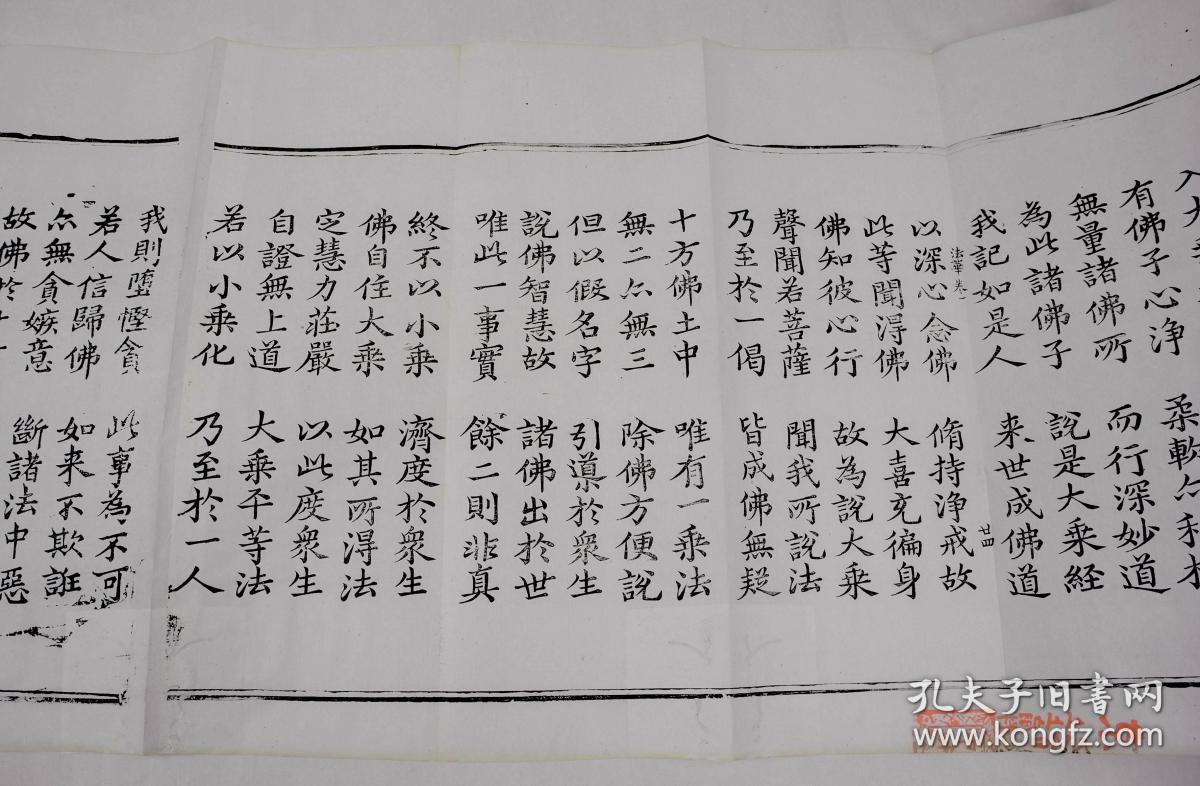 入大
有佛子心浄 柔軟亦利
無量諸佛所 而行深妙道
為此諸佛子 說是大乘経
我記如是人 来世成佛道
法華卷一 廿四
以深心念佛 脩持浄戒故
此等聞得佛 大喜充徧身
佛知彼心行 故為說大乘
聲聞若菩薩 聞我所說法
乃至於一偈 皆成佛無疑
十方佛土中 唯有一乘法
無二亦無三 除佛方便說
但以假名字 引導於衆生
說佛智慧故 諸佛出於世
唯此一事實 餘二則非真
終不以小乘 濟度於衆生
佛自住大乘 如其所得法
定慧力莊嚴 以此度衆生
自證無上道 大乘平等法
若以小乘化 乃至於一人
我則墮慳貪 此事為不可
若人信歸佛 如来不欺誑
亦無貪嫉意 斷諸法中惡
故佛於十
孔夫子旧书网
www.kongfz.com